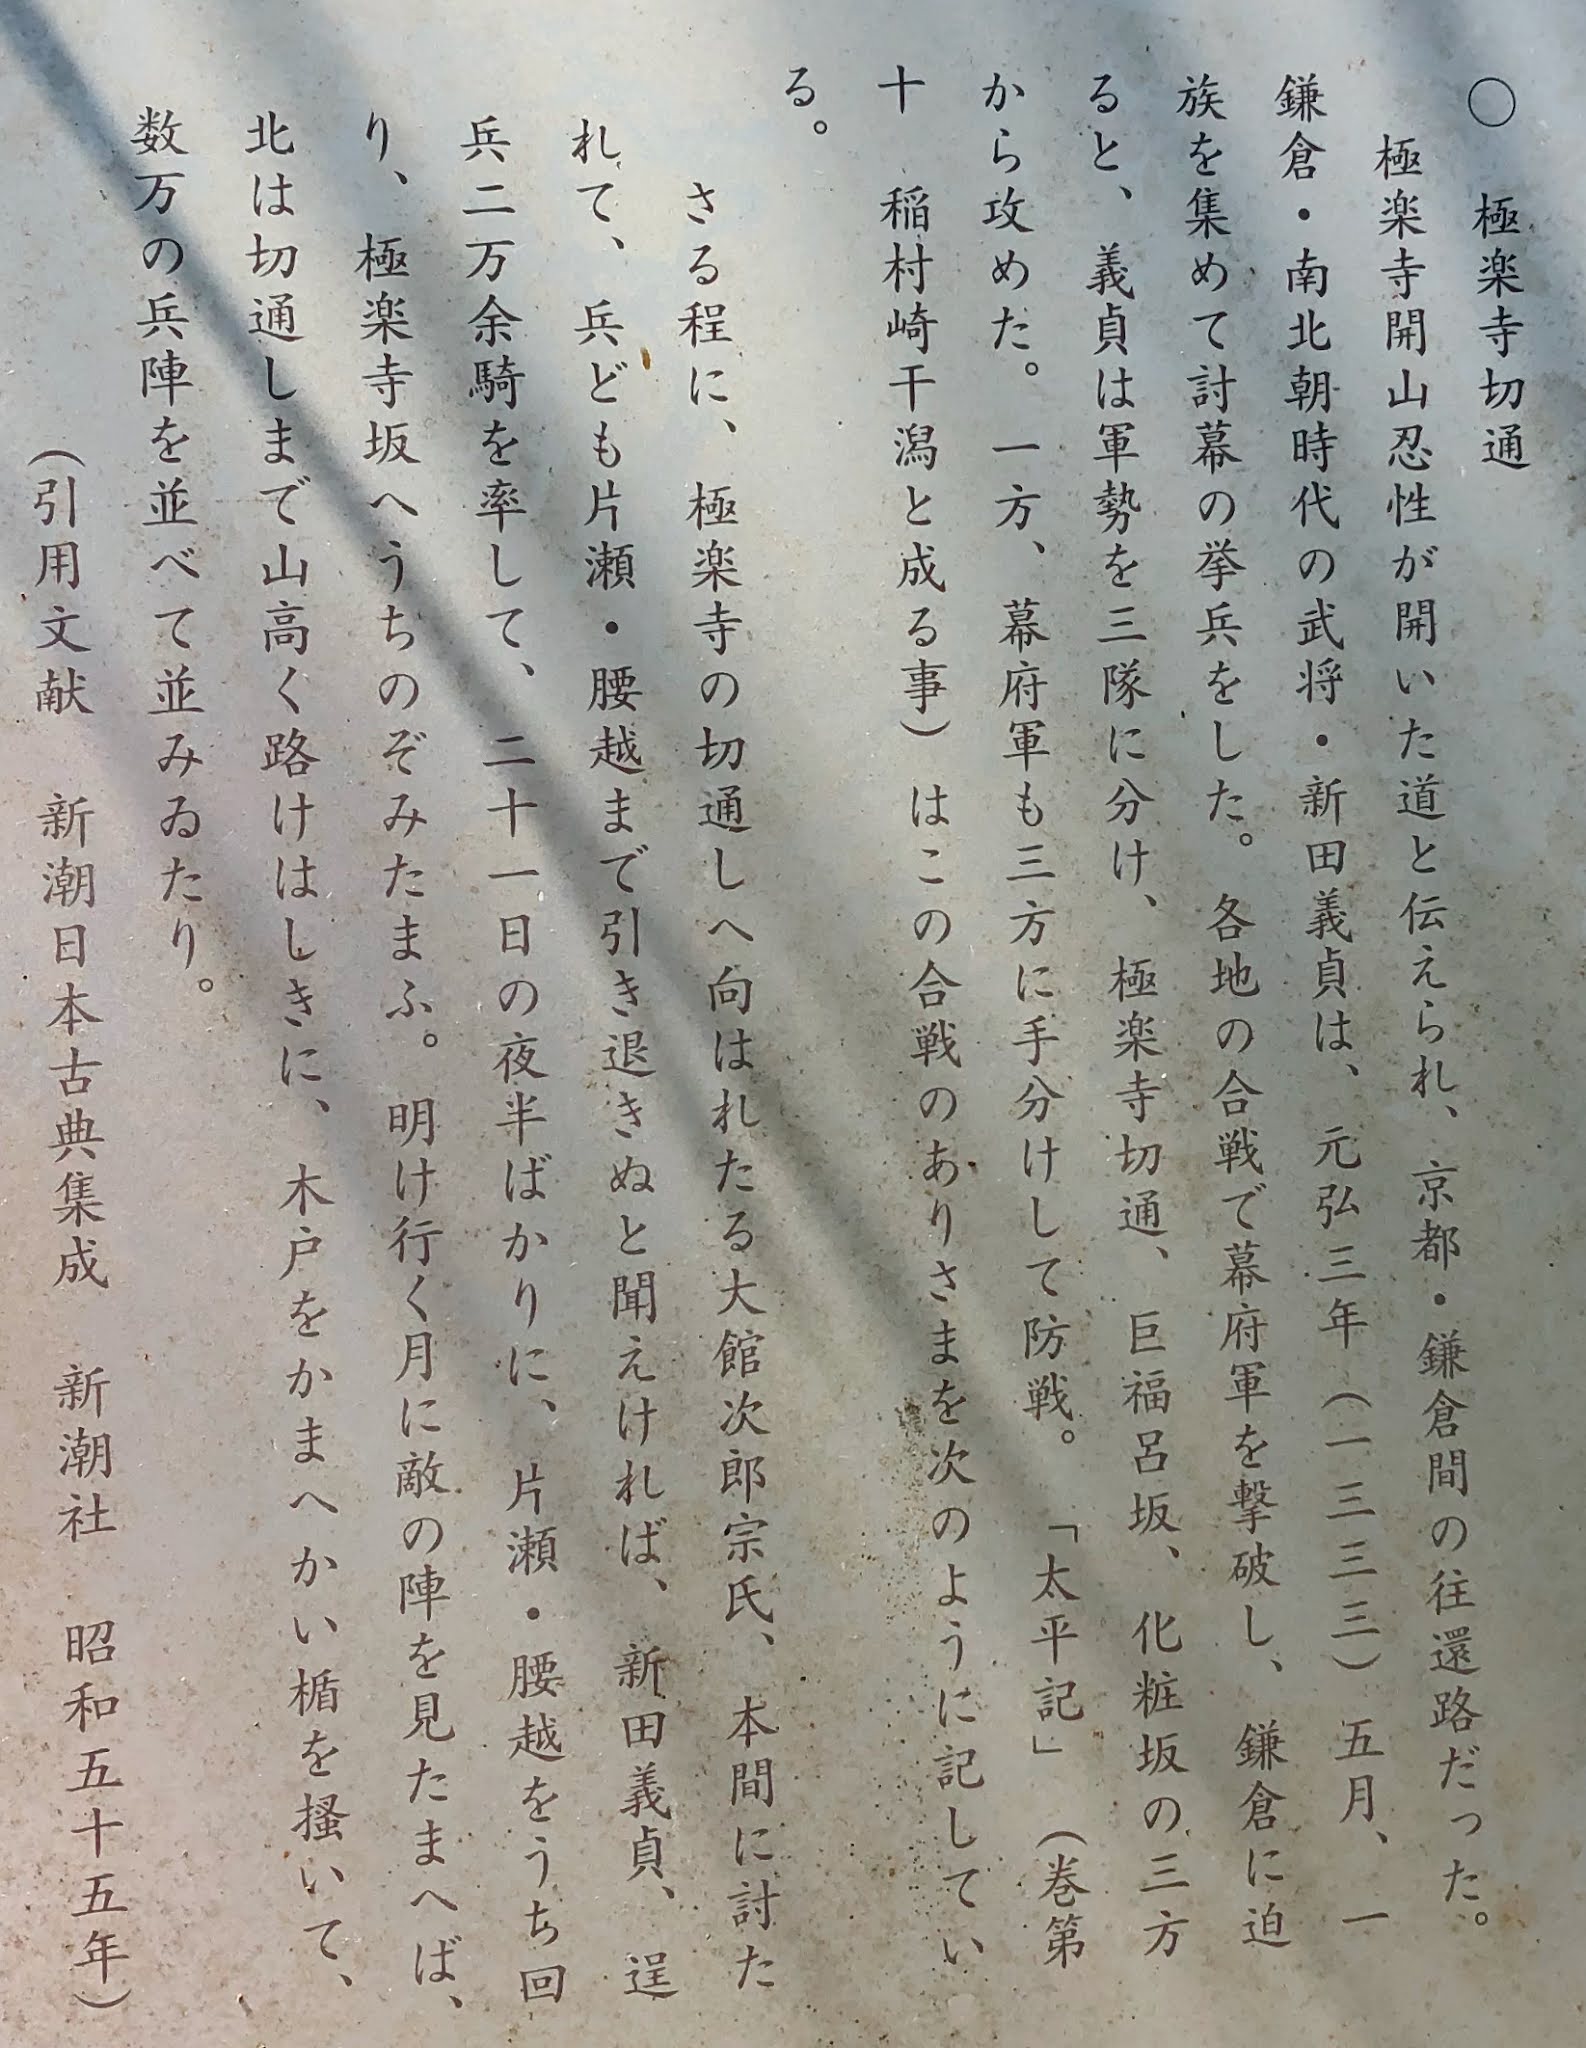 ○　極楽寺切通
極楽寺開山忍性が開いた道と伝えられ、京都・鎌倉間の往還路だった。
鎌倉・南北朝時代の武将・新田義貞は、元弘三年（一三三三）五月、一
族を集めて討幕の挙兵をした。各地の合戦で幕府軍を撃破し、鎌倉に迫
ると、義貞は軍勢を三隊に分け、極楽寺切通、巨福呂坂、化粧坂の三方
から攻めた。一方、幕府軍も三方に手分けして防戦。「太平記」（巻第
十　稲村崎干潟と成る事）はこの合戦のありさまを次のように記してい
る。
さる程に、極楽寺の切通しへ向はれたる大館次郎宗氏、本間に討た
れて、兵ども片瀬・腰越まで引き退きぬと聞えければ、新田義貞、逞
兵二万余騎を率して、二十一日の夜半ばかりに、片瀬・腰越をうち回
り、極楽寺坂へうちのぞみたまふ。明け行く月に敵の陣を見たまへば、
北は切通しまで山高く路けはしきに、木戸をかまへかい楯を掻いて、
数万の兵陣を並べて並みゐたり。
（引用文献　新潮日本古典集成　新潮社　昭和五十五年）